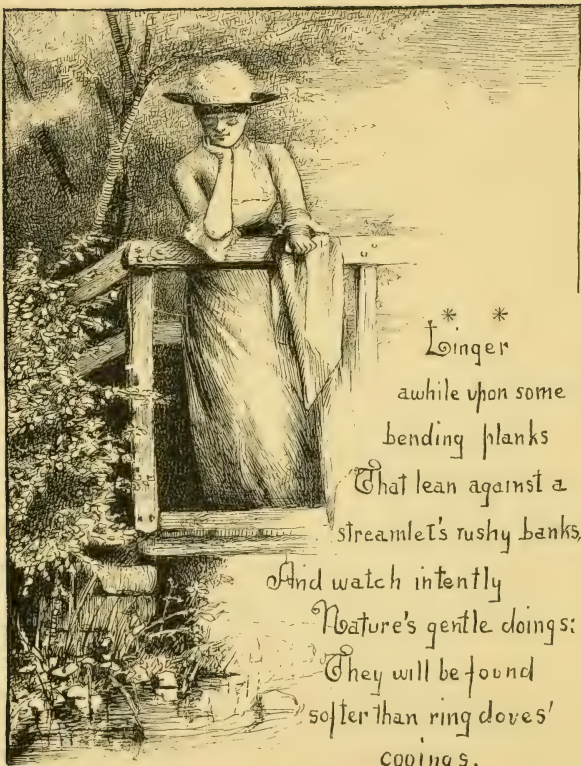 * *
Linger
awhile upon some
bending planks
That lean against a
streamlet's rushy banks,
And watch intently
Nature's gentle doings:
They will be found
softer than ring doves'
cooings.